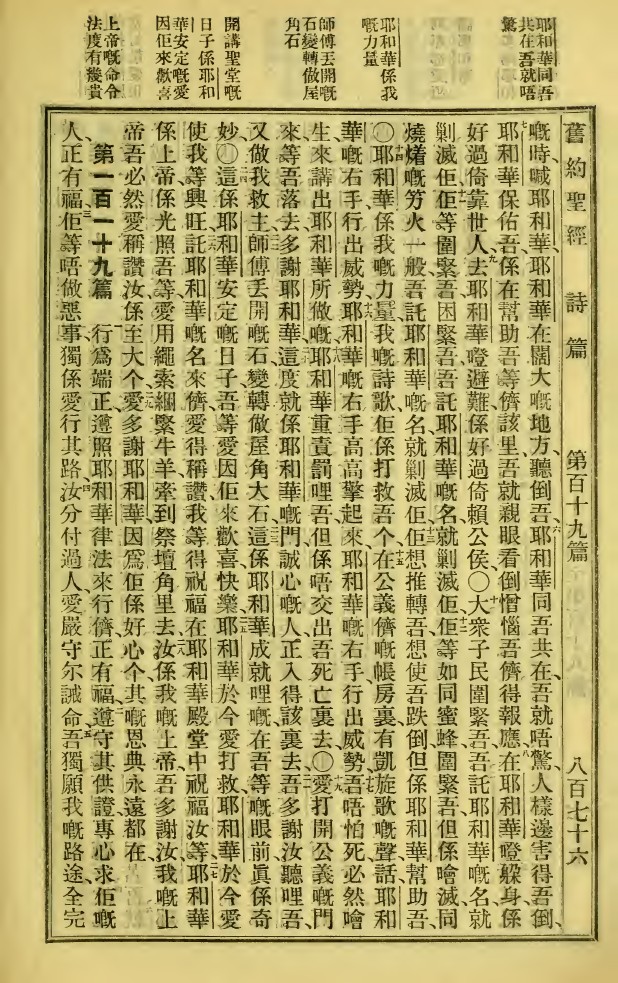 耶和華同吾
共在吾就唔
驚
耶和華係我
嘅力量
師傅丟開嘅
石變轉做屋
角石
開講聖堂嘅
日子係耶和
華安定嘅愛
因佢來歡喜
上帝嘅命令
法度有幾貴
舊約聖經 詩篇 第百十九篇 八百七十六
嘅時喊耶和華、耶和華在闊大嘅地方、聽倒吾、六耶和華同吾共在、吾就唔驚、人樣邊害得吾倒、
七耶和華保佑吾、係在幫助吾等儕該里、吾就親眼看倒憎惱吾儕得報應、八在耶和華噔躲身、係
好過倚靠世人去、九耶和華噔避難、係好過倚賴公侯〇十大衆子民圍緊吾、吾託耶和華嘅名、就
剿滅佢、十一佢等圍緊吾、因緊吾、吾託耶和華嘅名、就剿滅佢、十二佢等如同蜜蜂圍緊吾、但係噲滅、同
燒𤏲嘅竻火一般、吾託耶和華嘅名、就剿滅佢、十三佢想推轉吾、想使吾跌倒、但係耶和華幫助吾、
〇十四耶和華係我嘅力量、我嘅詩歌、佢係打救吾个、十五在公義儕嘅帳房裏、有凱旋歌嘅聲話、耶和
華嘅右手行出威勢、十六耶和華嘅右手高高擎起來、耶和華嘅右手行出威勢、十七吾唔怕死、必然噲
生、來講出耶和華所做嘅、十八耶和華重責罰哩吾、但係唔交出吾死亡裏去〇十九愛打開公義嘅門
來等吾落去、多謝耶和華、二十這度就係耶和華嘅門、誠心嘅人正入得該裏去、二一吾多謝汝聽哩吾、
又做我救主、二二師傅丟開嘅石、變轉做屋角大石、二三這係耶和華成就哩嘅、在吾等嘅眼前眞係奇
妙〇二四這係耶和華安定嘅日子、吾等愛因佢來歡喜快樂、二五耶和華於今愛打救、耶和華於今愛
使我等興旺、二六託耶和華嘅名來儕、愛得稱讚、我等得祝福在耶和華殿堂中祝福汝等、二七耶和華
係上帝、係光照吾等、係愛用繩索綑緊牛羊、牽到祭壇角里去、二八汝係我嘅上帝、吾多謝汝、我嘅上
帝、吾必然愛稱讚汝係至大个、二九愛多謝耶和華、因爲佢係好心个、其嘅恩典永遠都在、
第一百一十九篇 一行爲端正、遵照耶和華律法來行儕、正有福、二遵守其供證、專心求佢嘅
人、正有福、三佢等唔做惡事、獨係愛行其路、四汝分付過人愛嚴守尔誡命、五吾獨願我嘅路途、全完